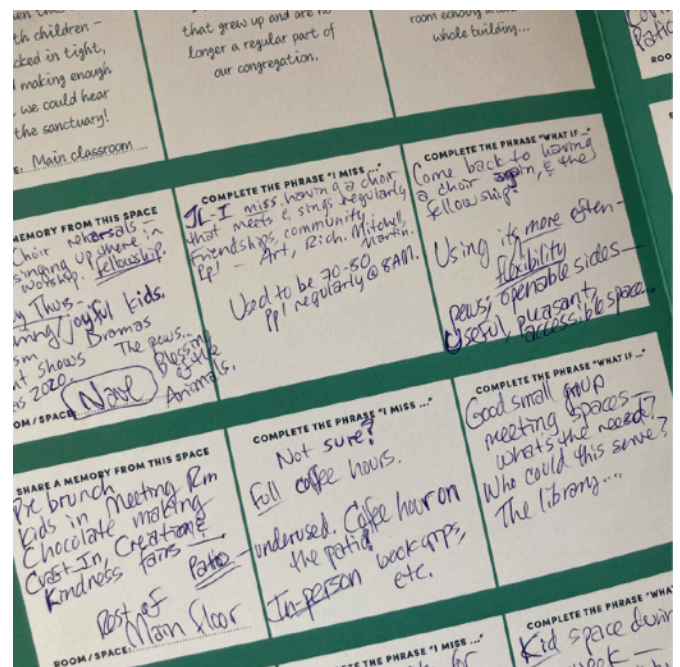 th children –
cked in tight,
making enough
we could hear
the sanctuary!
E: Main classroom
that grew up and are no
longer a regular part of
our congregation.
room echoing
whole building...
ROO
MEMORY FROM THIS SPACE
Choir rehersals –
singing up there in
worship. Fellowship.
y Thurs –
joyful kids.
sm Dramas
nt shows The pews...
as 2020. Blessing
of the
Nave Animals.
OM/SPACE:
COMPLETE THE PHRASE "I MISS ..."
JL – I miss having a choir
that meets & sings regularly
Friendships, community
Ppl – Art, Rich. Mitchell,
Martin.
Used to be 70-80
ppl regularly @ 8AM.
COMPLETE THE PHRASE "WHAT IF ..."
Come back to having
a choir again, & the
fellowship?
Using its more often –
flexibility
pews, openable sides –
Useful, pleasant,
accessible space...
SHARE A MEMORY FROM THIS SPACE
brunch
Kids in Meeting Rm
Chocolate making
Creation &
Kindness fairs –
Patio –
Rest of
Main floor
ROOM/SPACE:
COMPLETE THE PHRASE "I MISS ..."
Not sure?
Full coffee hours.
underused. Coffee hour on
the patio
In-person
etc.
COMPLETE THE PHRASE "WHAT IF ..."
Good small group
meeting spaces –
what's the need?
Who could this serve?
The library...
COMPLETE THE PHRASE "I MISS ..."
for
COMPLETE THE PHRASE "WHA
Kid space durin